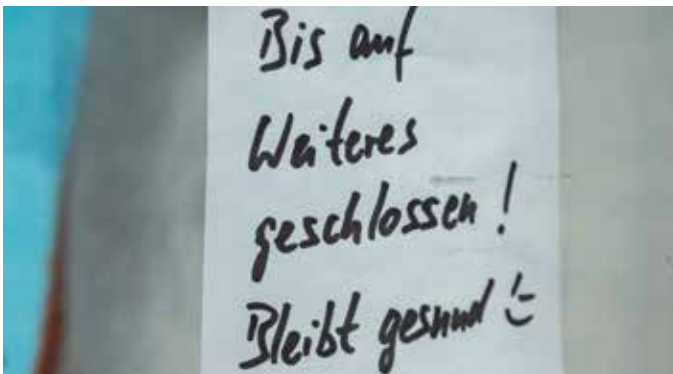 Bis auf
Weiteres
geschlossen!
Bleibt gesund